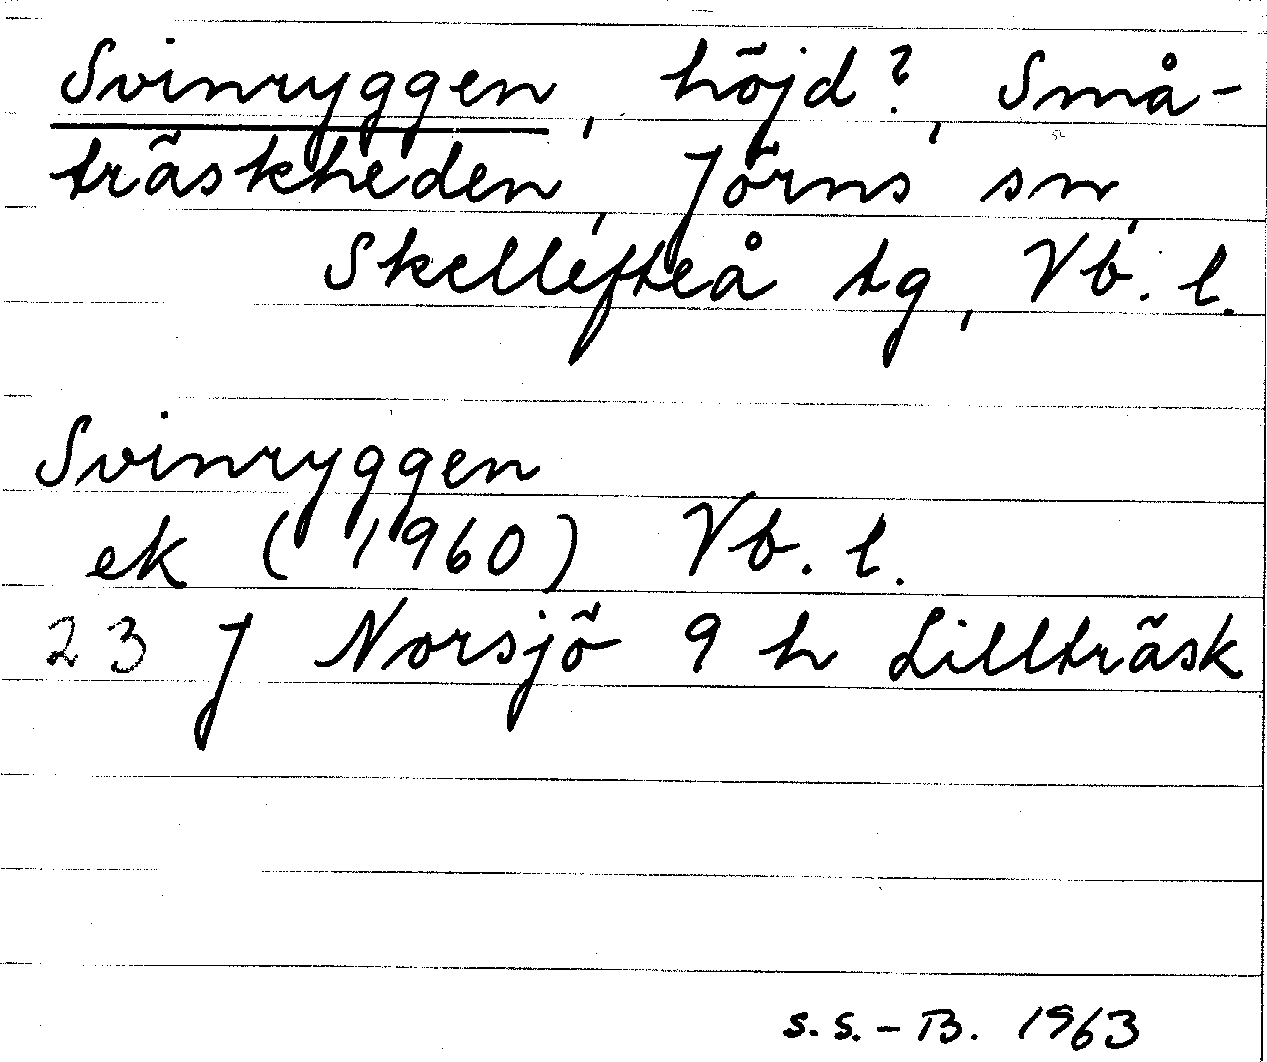 Svinryggen, höjd?, Små-
träskheden, Jörns sn,
Skellefteå tg, Vb. l.
Svinryggen
ek (1960) Vb. l.
23 J Norsjö 9 h Lillträsk
S. S. - B. 1963